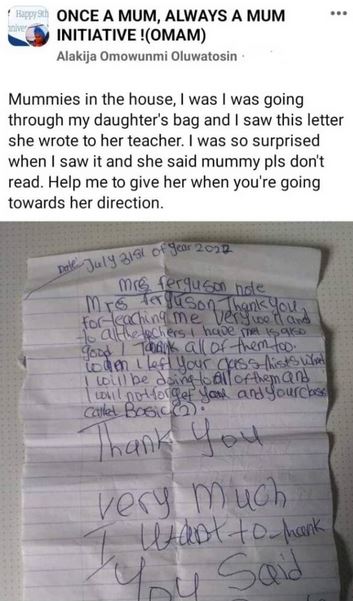 Happy 9th
ONCE A MUM, ALWAYS A MUM
INITIATIVE !(OMAM)
Alakija Omowunmi Oluwatosin ·
Mummies in the house, I was I was going
through my daughter's bag and I saw this letter
she wrote to her teacher. I was so surprised
when I saw it and she said mummy pls don't
read. Help me to give her when you're going
towards her direction.
Date: July 31st of year 2022
Mrs ferguson note
Mrs ferguson Thank you
for teaching me very well and
to all the techers I have met is also
good I Thank all of them too.
when I left your class this is what
I will be doing to all of them and
I will not forget you and your class
called Basic (2).
Thank You
very much
I want to thank
You Said